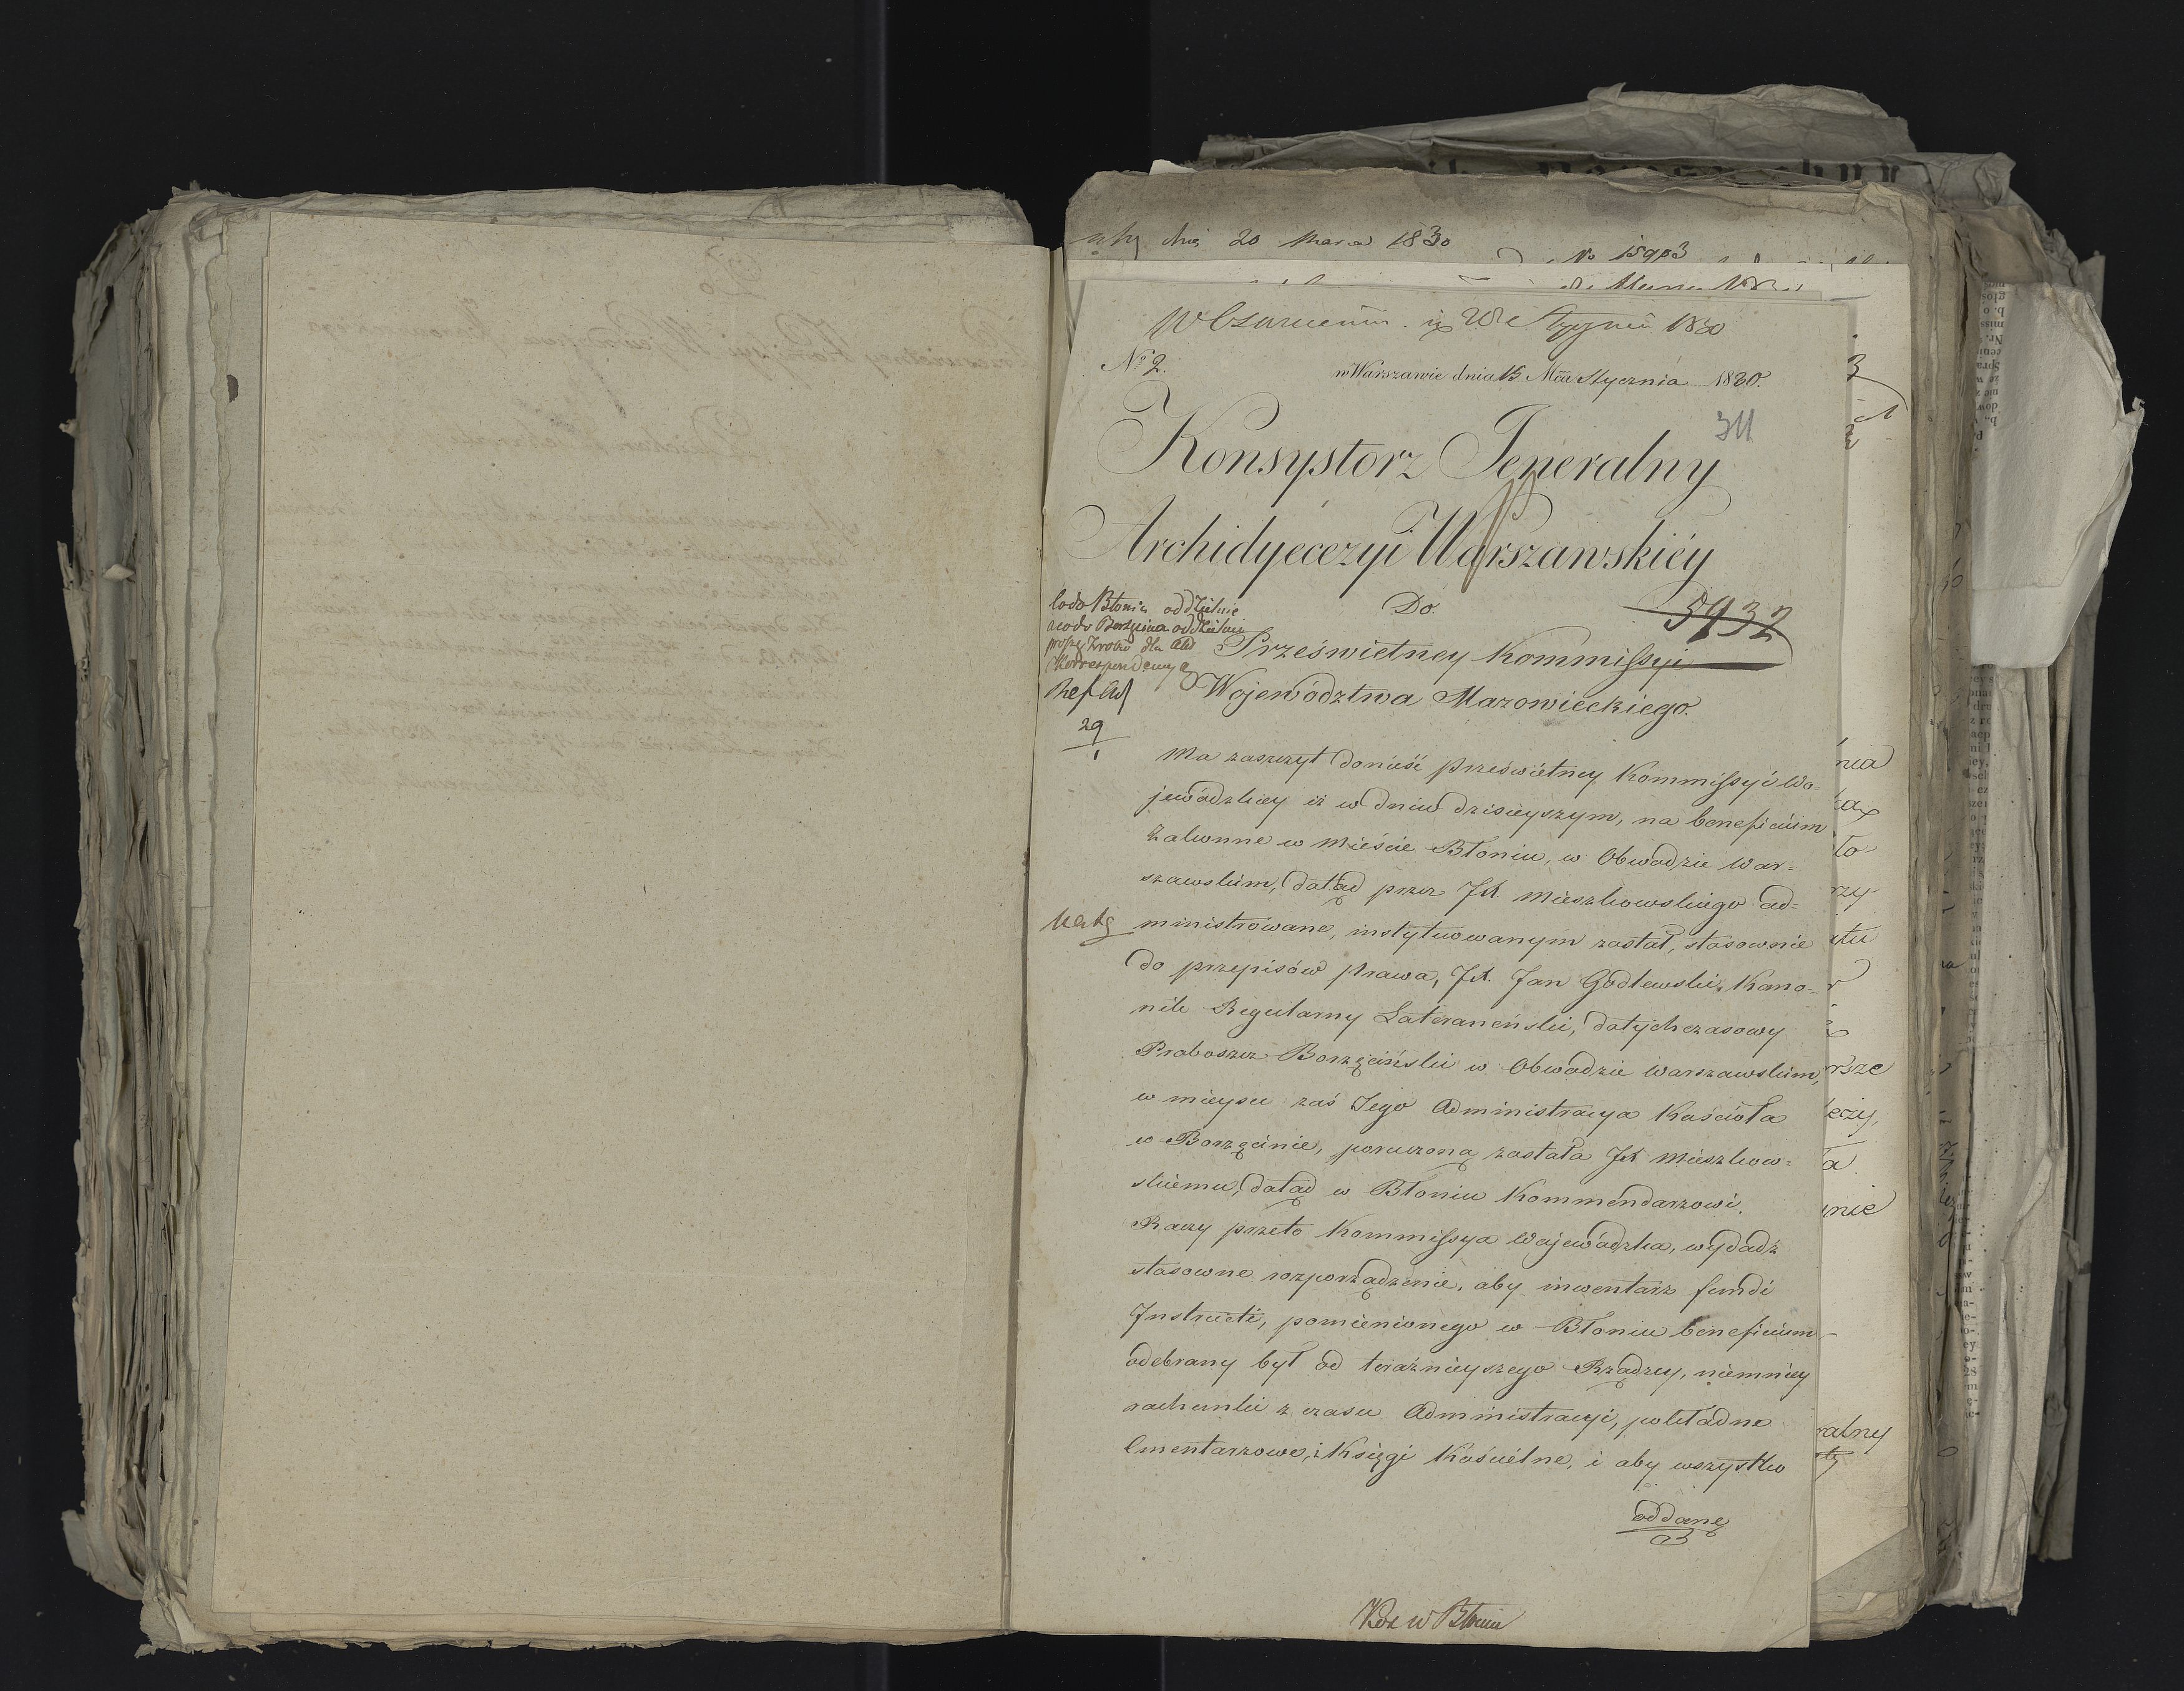 dnia 20 Marca 1830
No 15903
28 Stycznia 1830
No 2.
w Warszawie dnia 15 Mca Stycznia 1830.
311
Konsystorz Jeneralny
Archidyecezyi Warszawskiéy
Do
5932
Prześwietney Kommissyi
Województwa Mazowieckiego.
co do Błonia oddzielnie
a co do Borzęcina oddzielnie
dla
Korrespondencye
Ref
29
1
Ma zaszczyt donieść prześwietney Kommissyi Wo-
jewódzkiey iż w dniu dzisieyszym, na beneficium
Zakonne w mieście Błoniu, w Obwodzie War=
szawskim, dotąd przez JX. Mieszkowskiego ad=
ministrowane, instytuowanym został, stosownie
do przepisów prawa, JX. Jan Godlewski, Kano-
nik Regularny Laterańeński, dotychczasowy
Proboszcz Borzęciński w Obwodzie Warszawskim,
w mieyscu zaś Jego Administracya Kościoła
w Borzęcinie, poruczoną została JX Mieszkow=
skiemu, dotąd w Błoniu Kommendarzowi.
Raczy przeto Kommissya Wojewódzka, wydadź
stosowne rozporządzenie, aby inwentarz fundi
Instructi, pomienionego w Błoniu beneficium
odebrany był od teraźnieyszego Rządzcy, niemniey
rachunki z czasu Administracyi, pokładne
Cmentarzowe, i Księgi Kościelne, i aby wszystko
oddane
w Błoniu